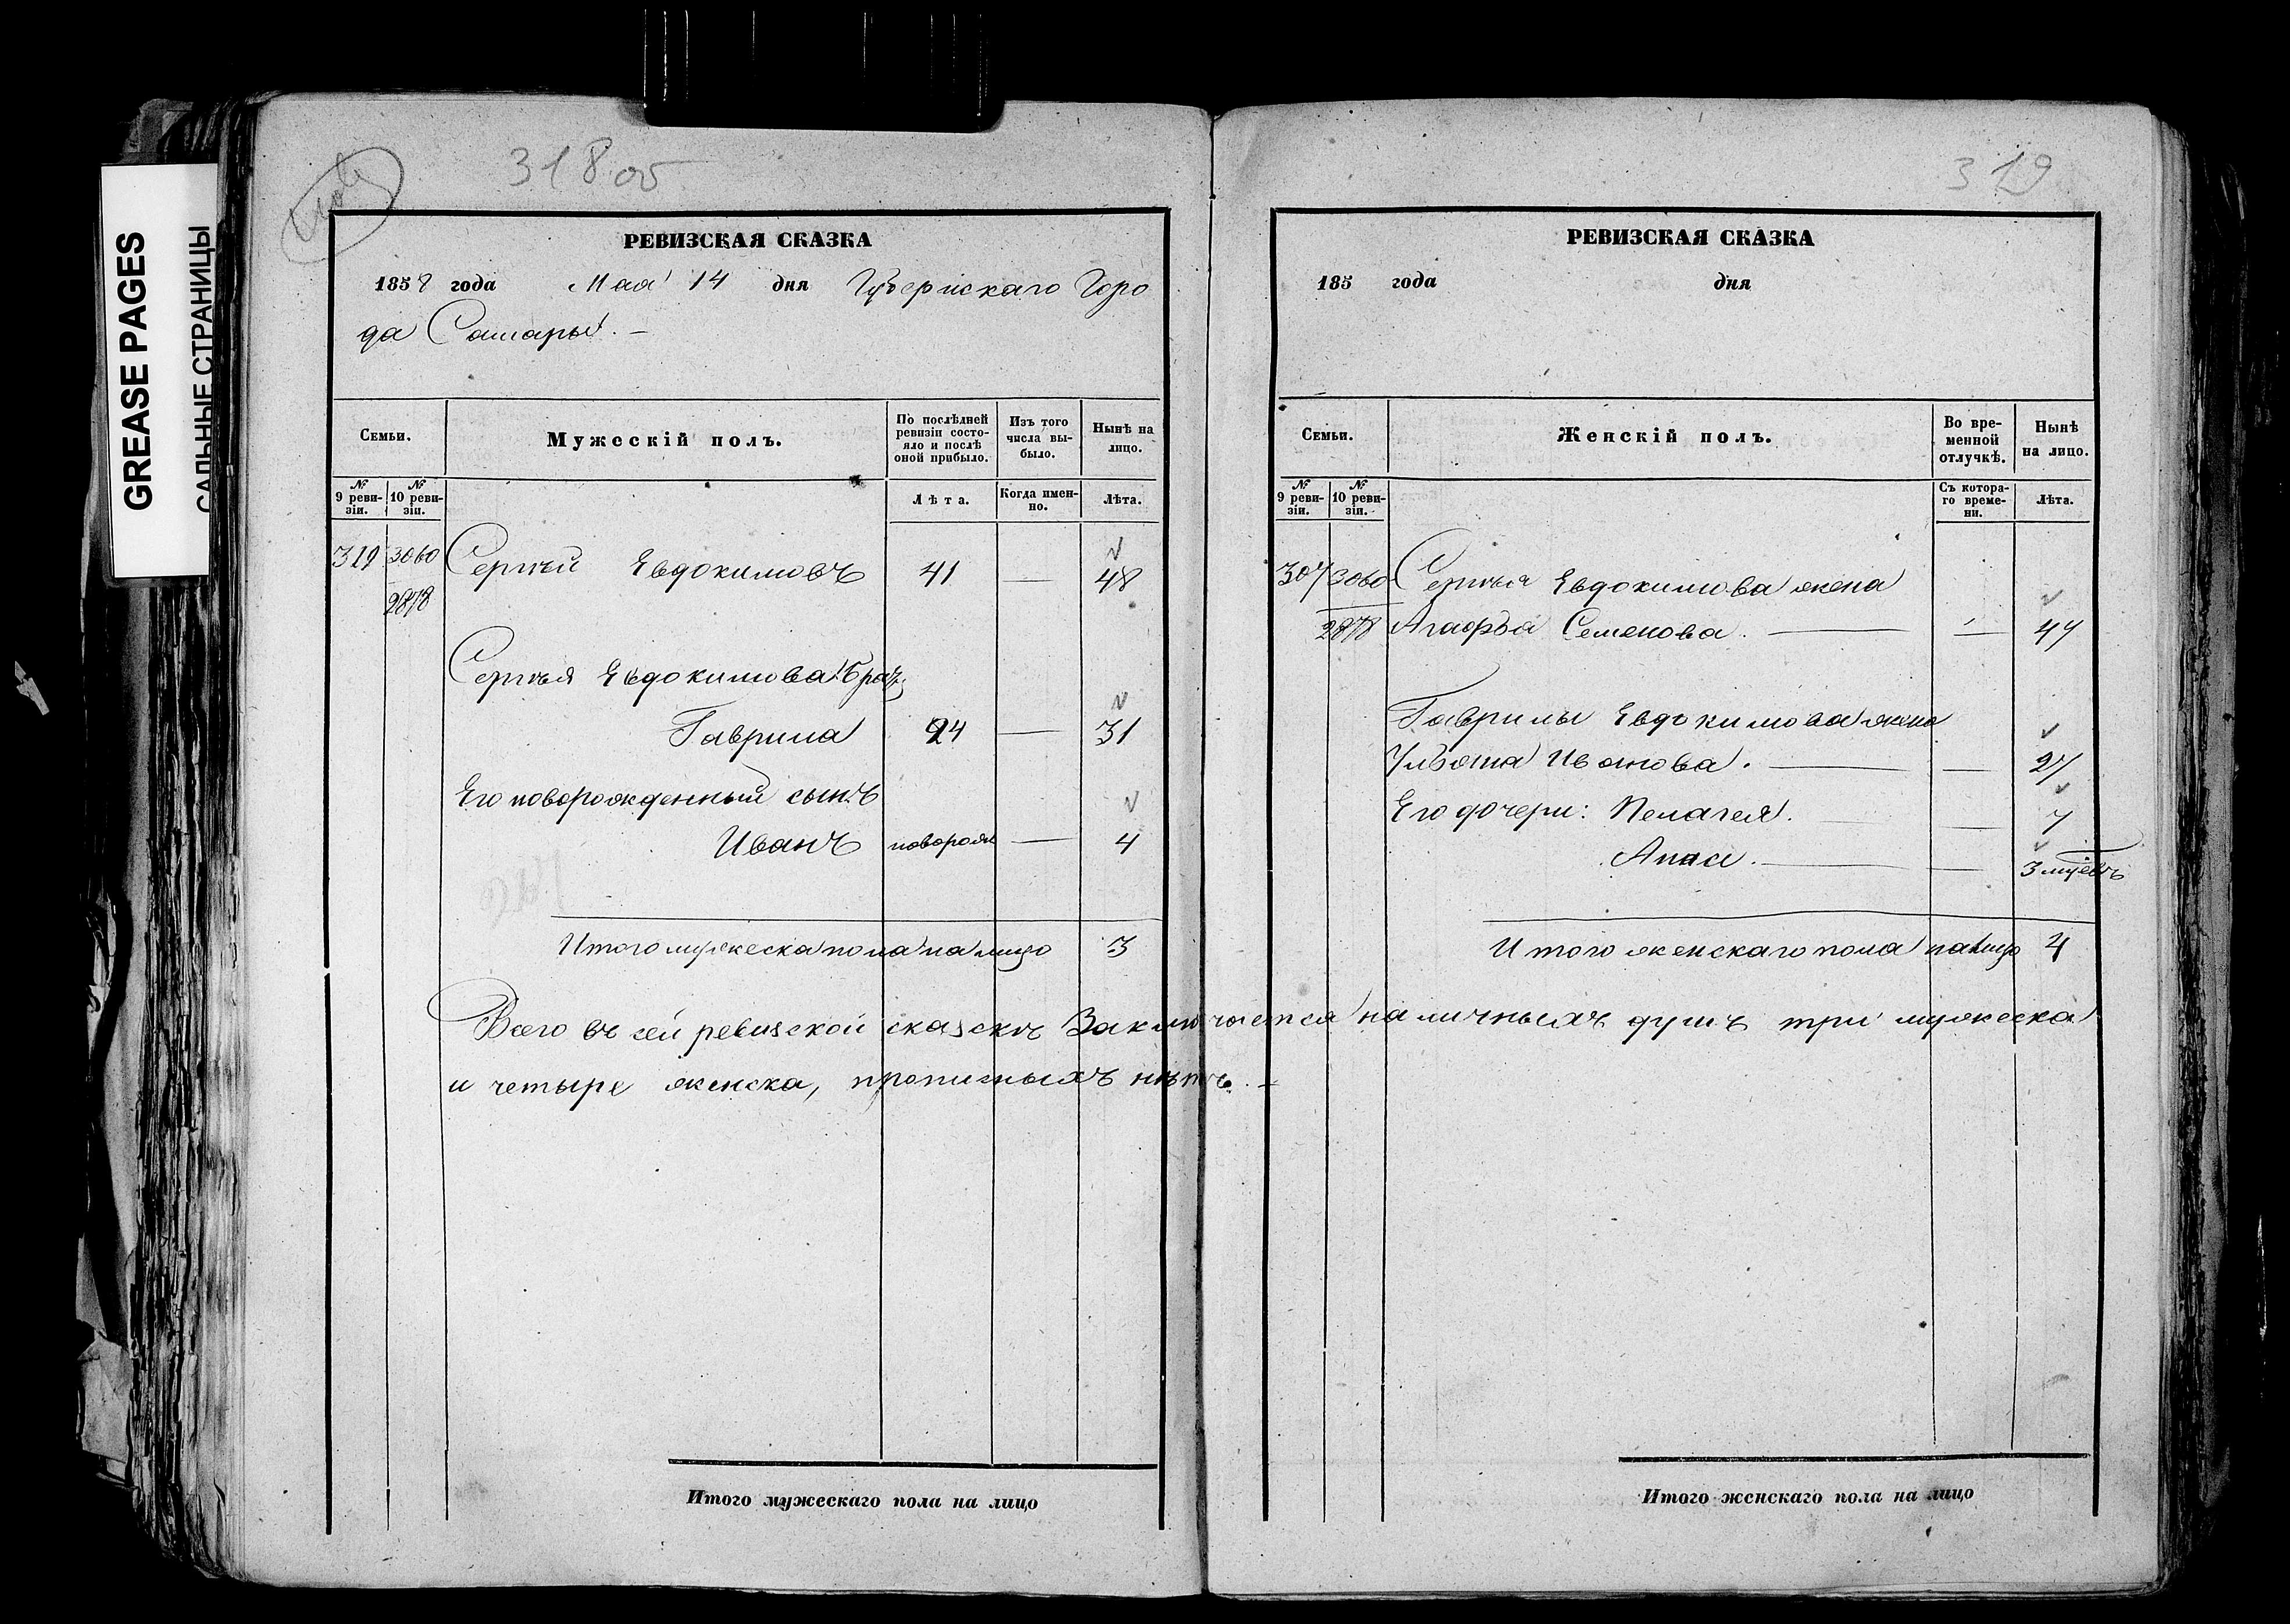 GREASE PAGES
САЛЬНЫЕ СТРАНИЦЫ
318 об
РЕВИЗСКАЯ СКАЗКА
1858 года Мая 14 дня Губернскаго Горо
да Самары. –
Семьи.
Мужескій полъ.
По послѣдней ревизіи состо-
яло и послѣ оной прибыло.
Изъ того числа вы-
было.
Нынѣ на лицо.
№ 9 реви-
зіи.
№ 10 реви-
зіи.
Лѣта.
Когда имен-
но.
Лѣта.
319 3060 Сергѣй Евдокимовъ 41 — 48
2878
Сергѣя Евдокимова братъ
Гаврила 24 — 31
Его новорожденный сынъ
Иванъ новорож — 4
Итого мужеска пола на лицо 3
Всего въ сей ревизской сказскѣ Заключается наличныхъ душъ три мужеска
и четыре женска, прописныхъ нѣтъ. –
Итого мужескаго пола на лицо
319
РЕВИЗСКАЯ СКАЗКА
185 года дня
Семьи.
Женскій полъ.
Во вре-
менной
отлучкѣ.
Нынѣ
на лицо.
№ 9 реви-
зіи.
№ 10 реви-
зіи.
Съ котора-
го време-
ни.
Лѣта.
307 3060 Сергѣя Евдокимова жена
2878 Агафья Семенова. — — 47
Гаврилы Евдокимова жена
Ульяна Иванова. — — 27
Его дочери: Пелагея. — 7
Анна. — — 3 мцевъ
Итого женскаго пола на лицо 4
Итого женскаго пола на лицо